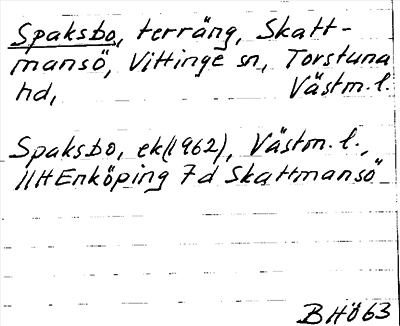 Spaksbo, terräng, Skatt-
mansö, Vittinge sn, Torstuna
hd, Västm. l.
Spaksbo, ek(1962), Västm. l.,
11H Enköping 7d Skattmansö
BHÖ63